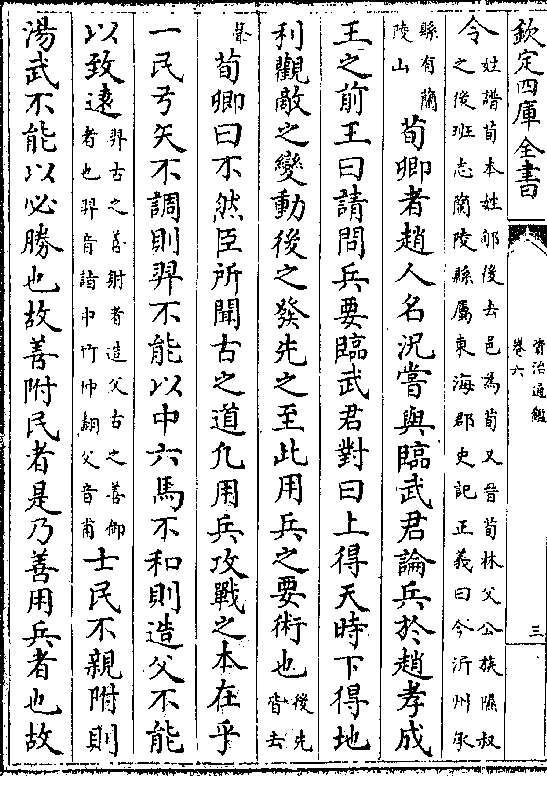 欽定四庫全書
資治通鑑
卷六
三
令姓譜荀本姓郇後去邑為荀又晉荀林父公族隰叔之後班志蘭陵縣屬東海郡史記正義曰今沂州承
縣有蘭陵山荀卿者趙人名況嘗與臨武君論兵於趙孝成
王之前王曰請問兵要臨武君對曰上得天時下得地
利觀敵之變動後之發先之至此用兵之要術也後先皆去
聲荀卿曰不然臣所聞古之道凡用兵攻戰之本在乎
一民弓矢不調則羿不能以中六馬不和則造父不能
以致遠羿古之善射者造父古之善御者也羿音詣中竹仲翻父音甫士民不親附則
湯武不能以必勝也故善附民者是乃善用兵者也故